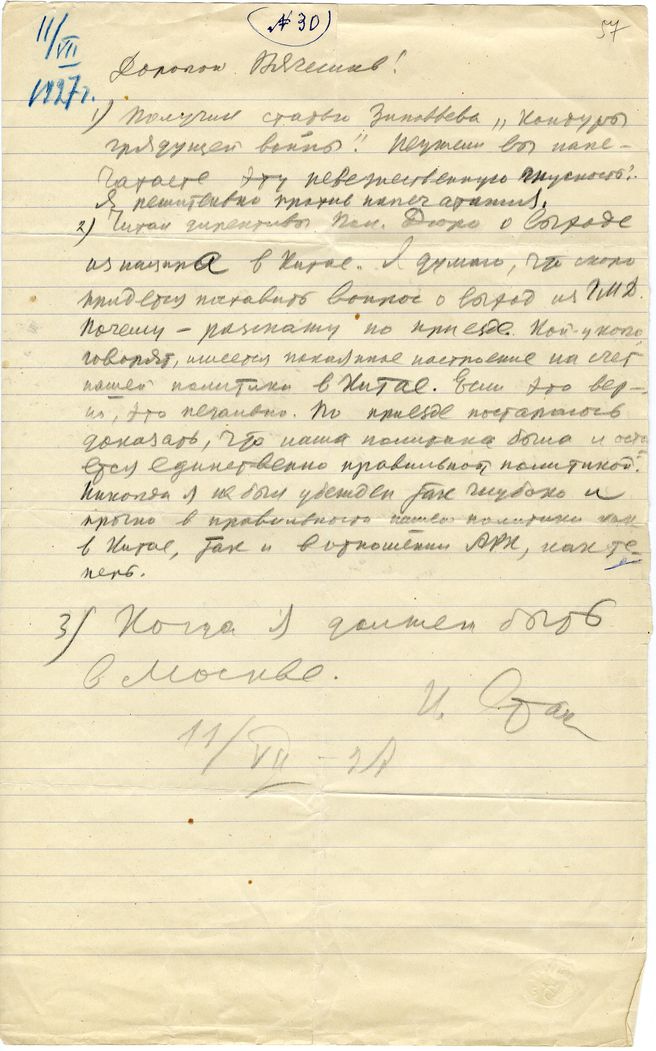 11/VII
1927г.
№ 30
57
Дорогой Вячеслав!
1) Получил статью Зиновьева „Контуры
грядущей войны". Неужели вы напе-
чатаете эту невежественную гнусность?
Я решительно против напечатания.
2) Читал директивы Пол. Бюро о выходе
из нацпра в Китае. Я думаю, что скоро
придется поставить вопрос о выход из ГМД.
Почему – расскажу по приезде. Кой-у кого,
говорят, имеется покаянное настроение на счет
нашей политики в Китае. Если это вер-
но, это печально. По приезде постараюсь
доказать, что наша политика была и оста
ется единственно правильной политикой.
Никогда я не был убежден так глубоко и
прочно в правильности нашей политики как
в Китае, так и в отношении АРК, как те-
перь.
3) Когда я должен быть
в Москве.
И. Стал
11/VII – 27